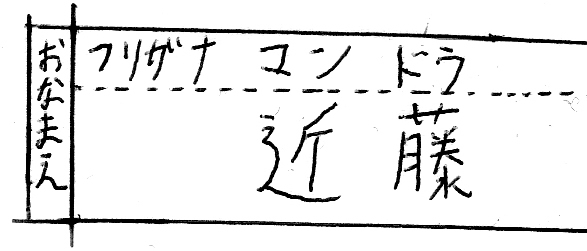 おなまえ
フリガナ マン ドラ
近 藤